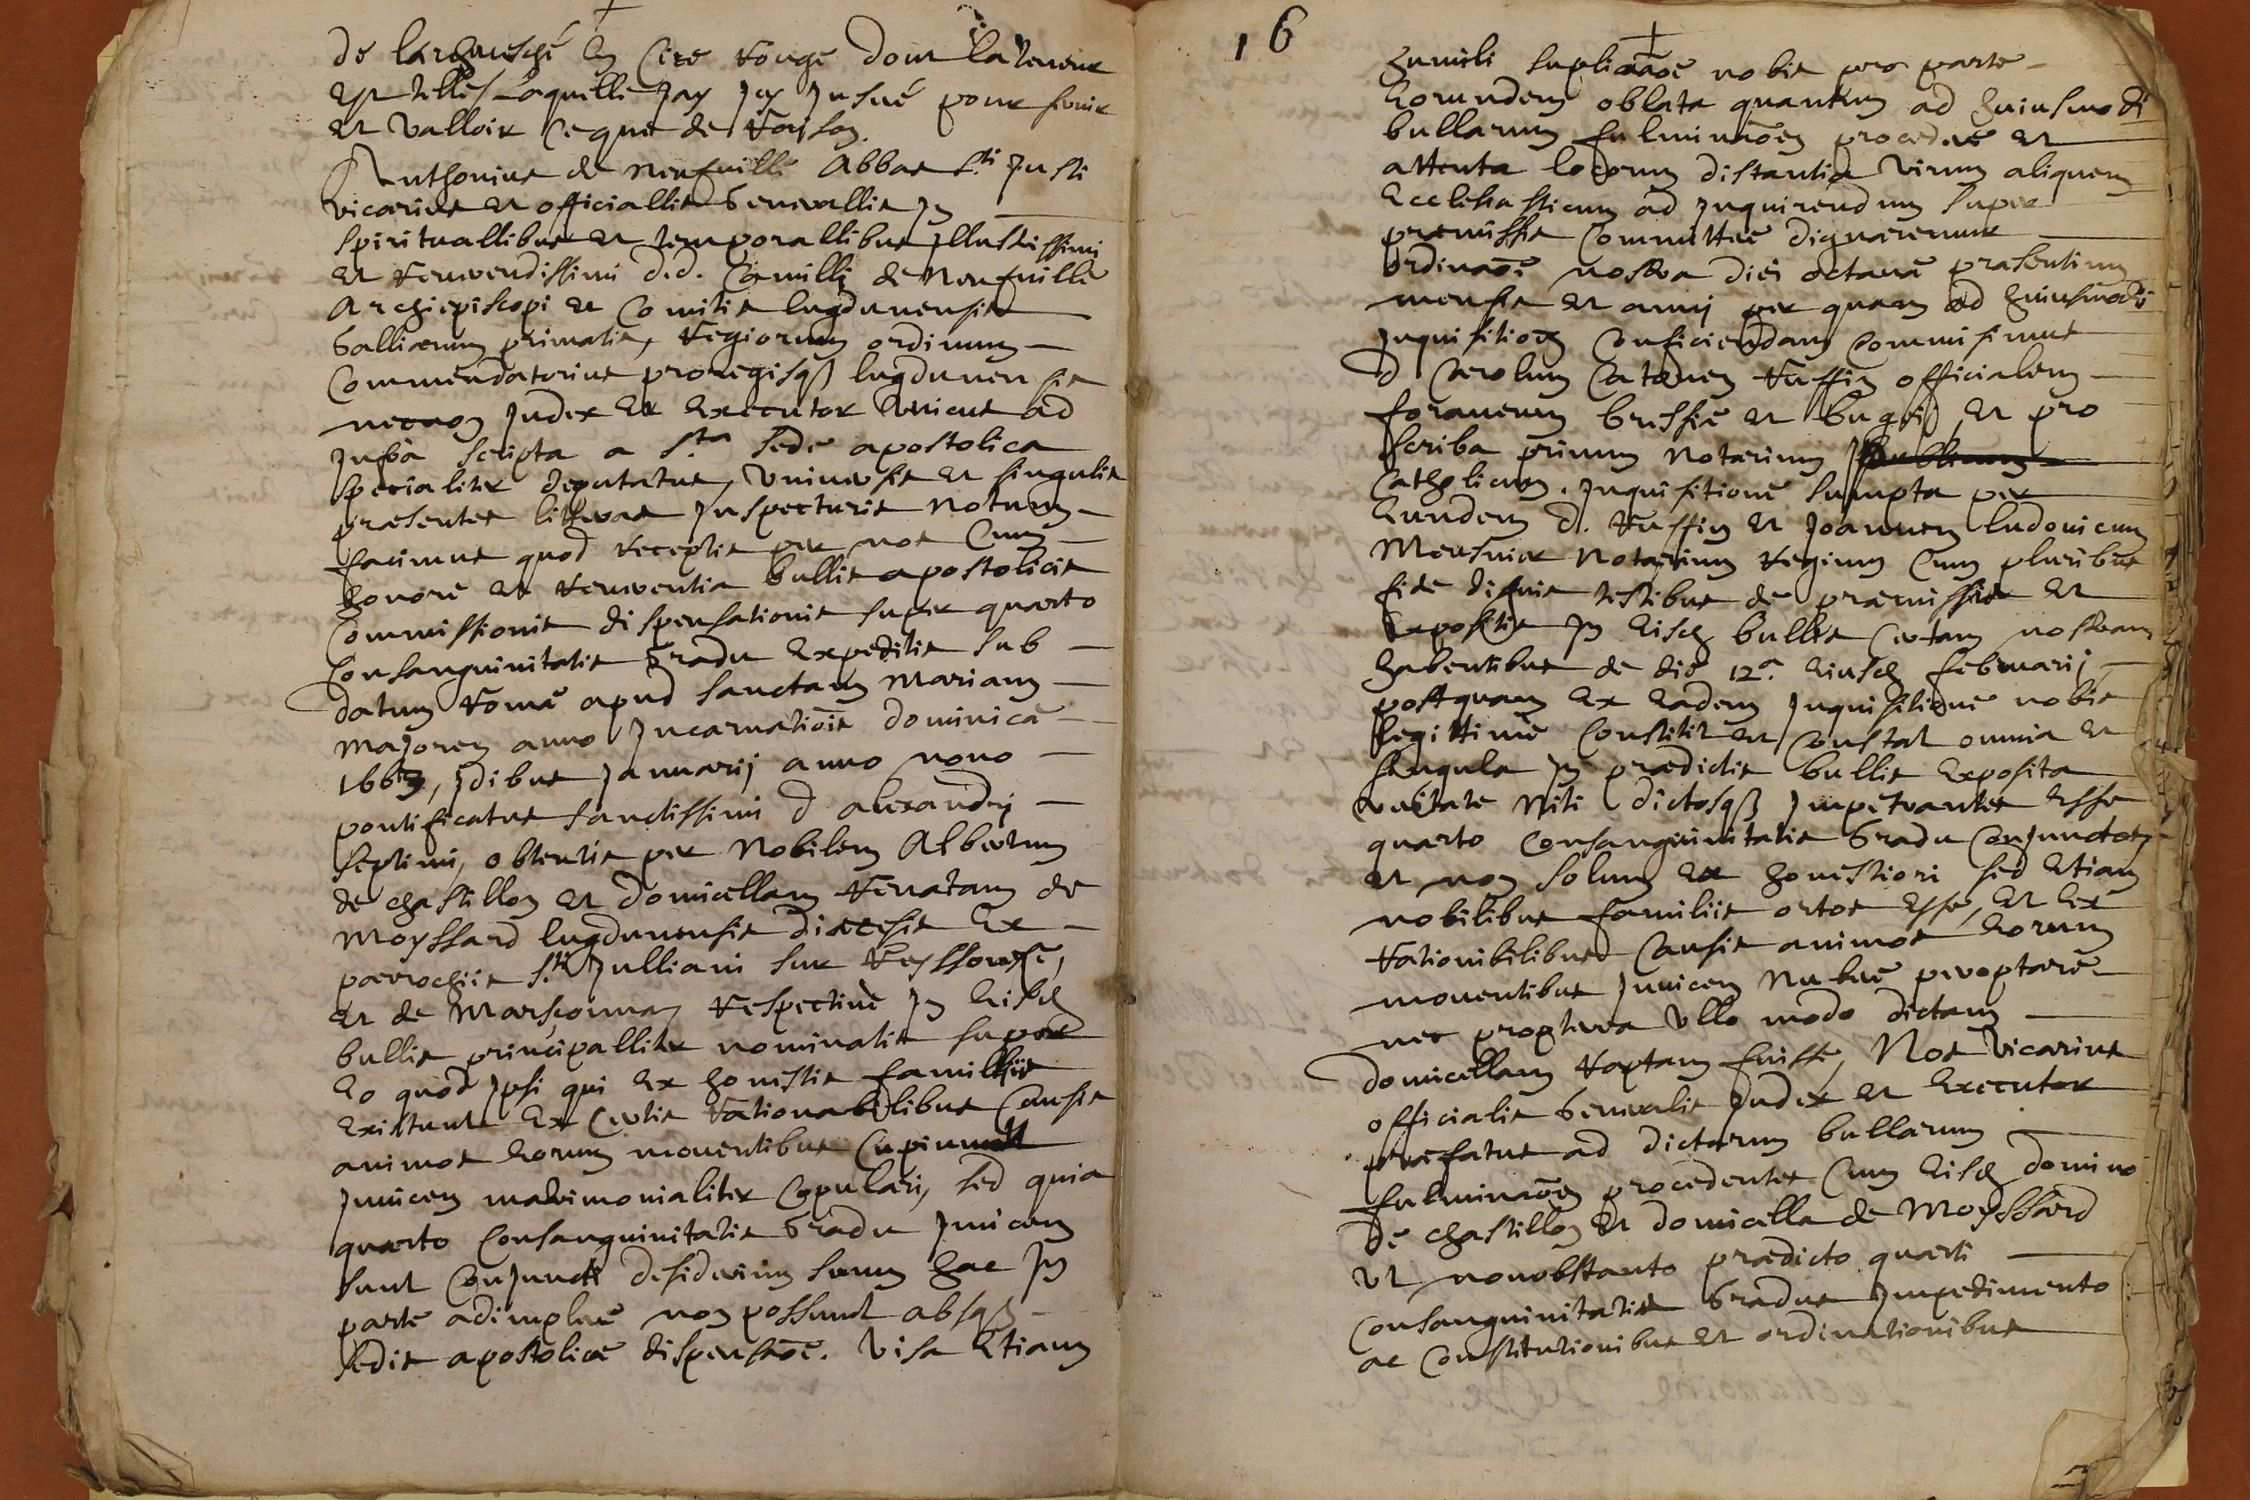 de larcheveché En Cire Rouge dont la teneur
Est telle, Laquelle Jay Jcy Jnseré pour servir
Et valloir ce que de Raison.
Anthonius de Neufville Abbas S.ti Justi
vicarius et officiallis Generallis Jn
spirituallibus et temporallibus Jllustrissimi
et Reverendissimi d.d. Camilli de Neufville
Archiepiscopi et Comitis lugdunensis
Galliarum primatis, Regiorum ordinum
Commendatorius proregisq3 lugdunensis
necnon Judex et Executor Unicus ad
Jnfrà scripta a S.ta sede apostolica
specialiter deputatus, Universis et singulis
presentes litteras Jnspecturis Notum
facimus quod Receptis per nos Cum
honore et Reverentia bullis apostolicis
Commissionis dispensationis super quarto
Consanguinitatis gradu Expeditis sub
datum Romæ apud sanctam Mariam
Majorem anno Jncarnatiois dominicæ
1663, Jdibus Januarij anno nono
pontificatus sanctissimi d alexandrj
septimi, obtentis per Nobilem Albertum
de chastillon et domicellam Renatam de
Moyssard lugdunensis diœcesis Ex
parrochiis S.ti Julliani sur Reyssouse,
et de Marsonnas Respective Jn Eisd
bullis principalliter nominatis super
Eo quod Jpsi qui Ex honestis familliis
Existunt Ex Certis Rationabilibus Causis
animos Eorum moventibus Cupiunt
Jnvicem matrimonialiter Copulari, sed quia
quarto Consanguinitatis Gradu Jnvicem
sunt Conjuncti desiderium suum hac Jn
parte adimplere non possunt absq3
sedis apostolicæ dispensaoe. Visa Etiam
16
humili suplicaoe nobis pro parte
Eorundem oblata quantum ad huiusmodi
bullarum fulminaoem procedere et
attenta locorum distantia virum aliquem
Ecclesiasticum ad Jnquirendum super
præmissis Committere dignaremur
ordinaoe nostra diei octavæ præsentium
mensis et annj per quam ad huiusmodi
Jnquisitioem Conficiendam Commisimus
d Carolum Ruffin officialem
foraneum brissiæ et bugeij, et pro
scriba primum Notarium publicum
Catholicum. Jnquisitione sumpta per
Eundem d. Ruffin et Joannem ludovicum
Notarium Regium Cum pluribus
fide dignis testibus de præmissis et
Expositis Jn Eisd bullis Certam nostram
habentibus de die 12.a Eiusd februarij
postquam Ex Eadem Jnquisitione nobis
legittime Constitit et Constat omnia et
singula Jn prædictis bullis Exposita
veritate Niti dictosq3 Jmpetrantes Esse
quarto Consanguinitatis Gradu Conjunctos
et non solum Ex honestiori sed Etiam
nobilibus familiis ortos Esse, et Ex
Rationibilibus Causis animos Eorum
moventibus Jnvicem Nubere peroptare
nec propterea Ullo modo dictam
domicellam Raptam fuisse, Nos Vicarius
officialis Generalis Judex et Executor
præfatus ad dictarum bullarum
fulminaoem procedentes Cum Eisd domino
de chastillon et domicella de Moyssard
Ut nonobstante prædicto quarti
Consanguinitatis Gradus Jmpedimento
ac Constitutionibus et ordinationibus